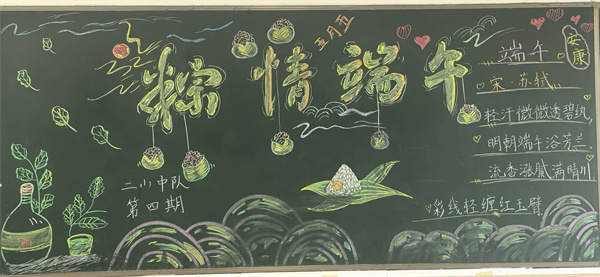 粽情端午
五月五
端午
安康
宋·苏轼
轻汗微微透碧纨,
明朝端午浴芳兰.
流香涨腻满晴川.
彩线轻缠红玉臂
二小中队
第四期